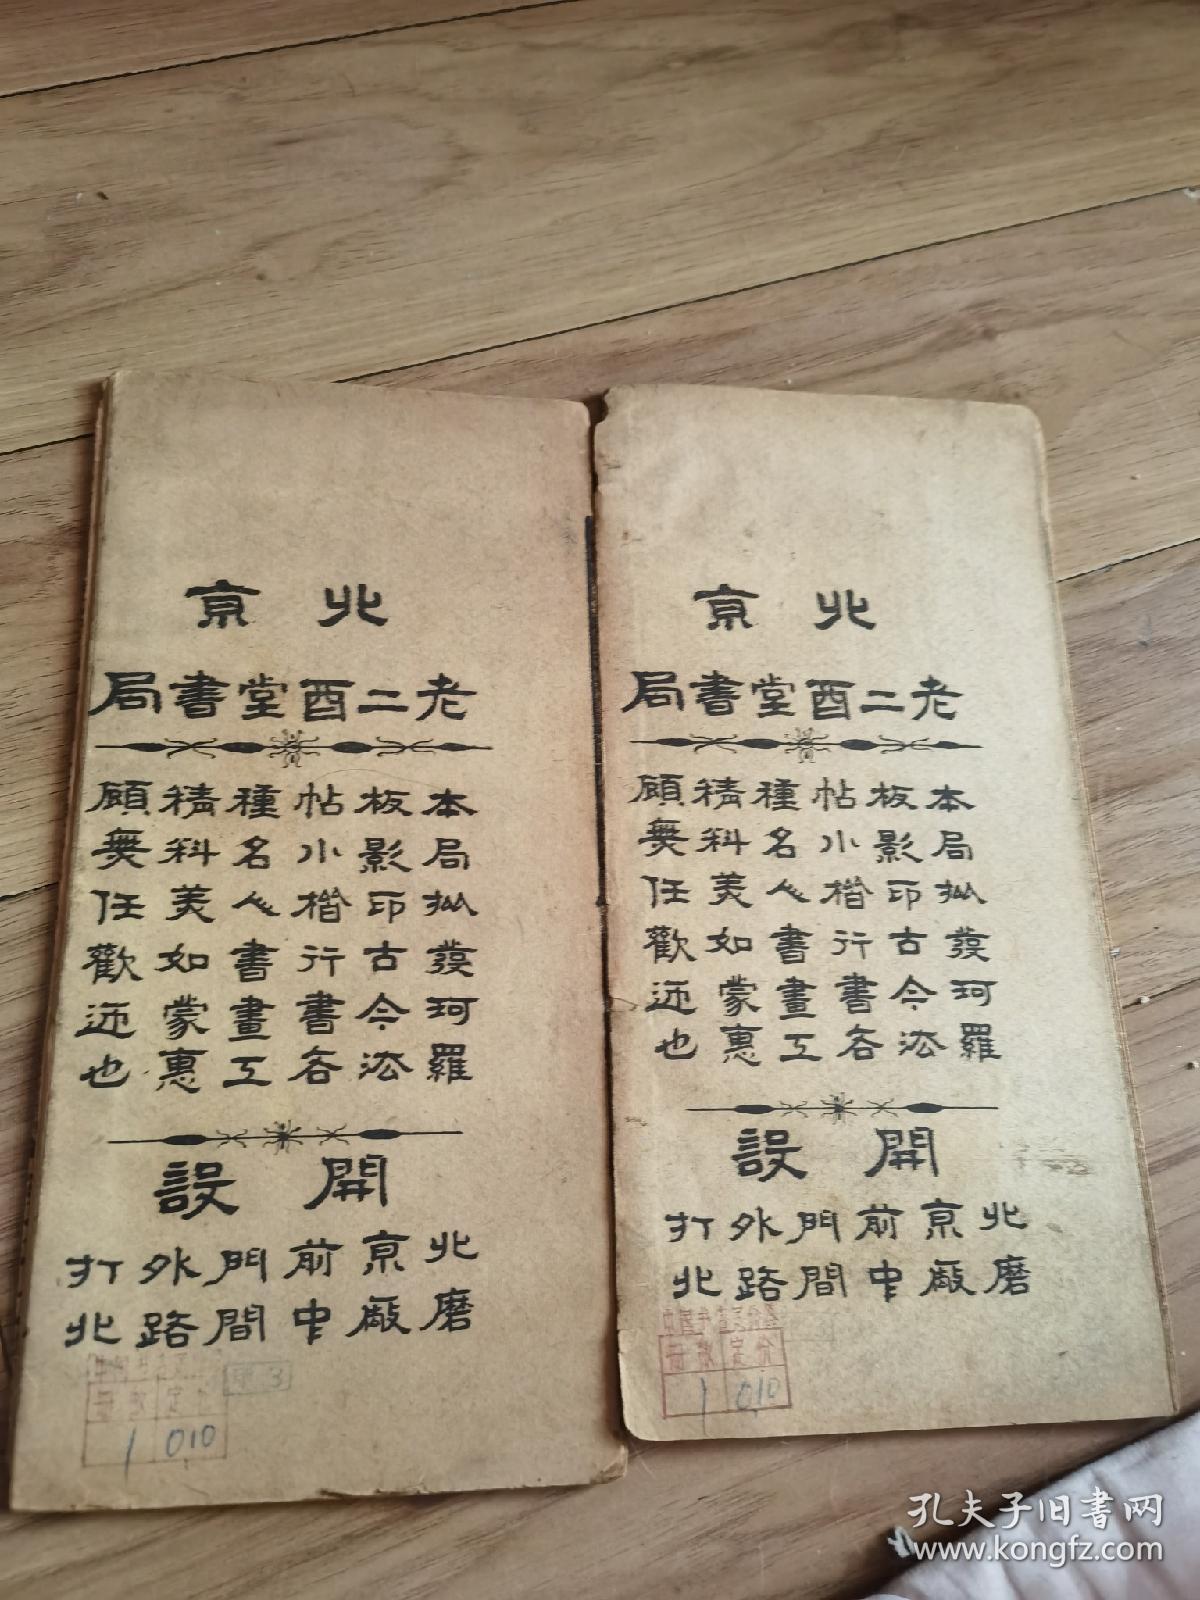 北京
老二酉堂書局
本局批發珂羅
板影印古今法
帖小楷行書各
種名人書畫工
精料美如蒙惠
顧無任歡迎也
開設
北京前門外打
磨廠中間路北
册数 定价
1 010
北京
老二酉堂書局
本局批發珂羅
板影印古今法
帖小楷行書各
種名人書畫工
精料美如蒙惠
顧無任歡迎也
開設
北京前門外打
磨廠中間路北
册数 定价
1 010
孔夫子旧书网
www.kongfz.com